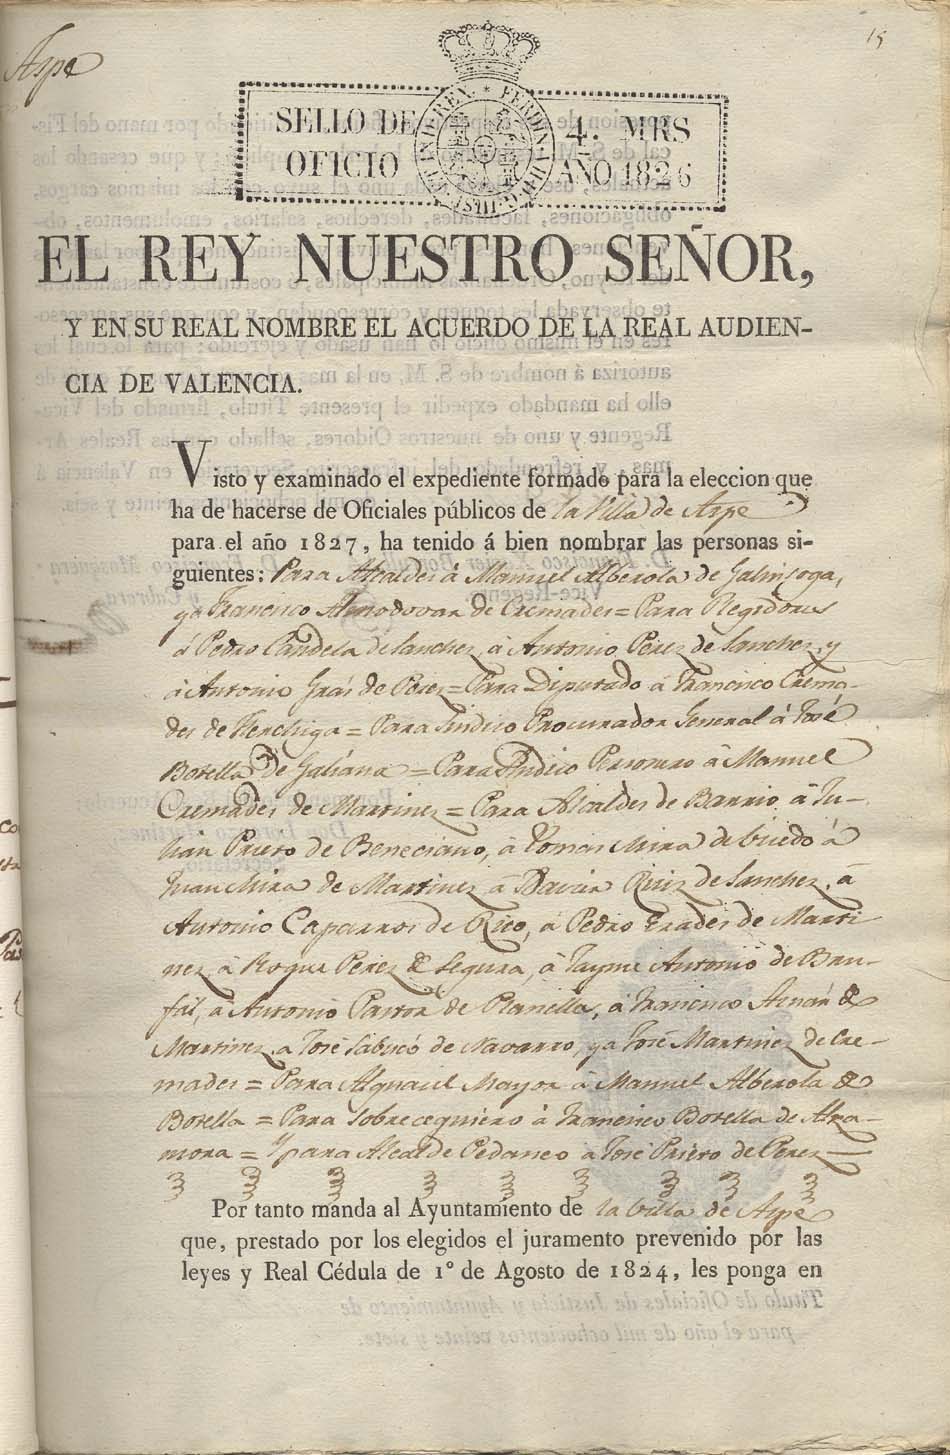 Aspe
15
SELLO DE 4. MRS
OFICIO AÑO 1826
EL REY NUESTRO SEÑOR,
Y EN SU REAL NOMBRE EL ACUERDO DE LA REAL AUDIEN-
CIA DE VALENCIA.
Visto y examinado el expediente formado para la eleccion que
ha de hacerse de Oficiales públicos de la Villa de Aspe
para el año 1827, ha tenido á bien nombrar las personas si-
guientes: Para Alcaldes á Manuel Alberola de Galinsoga,
y a Francisco Almodovar de Cremades = Para Regidores
á Pedro Candela de Sanchez, á Antonio Perez de Sanchez, y
á Antonio Grás de Perez = Para Diputado á Francisco Crema-
des de Henchiga = Para Sindico Procurador General á José
Botella de Galiana = Para Sindico Personero á Manuel
Cremades de Martinez = Para Alcaldes de Barrio á Ju-
lian Prieto de Beneciano, á Tomas Mira de á
Juan Mira de Martinez á Ruiz de Sanchez, á
Antonio Caparros de Rico, á Pedro Prades de Marti-
nez, á Roque Perez de Segura, á Jayme Antonio de Bru-
fal, á Antonio Pastor de Planella, á Francisco Aznar de
Martinez, a José Sabucó de Navarro, y a José Martinez de Cre-
mades = Para Alguacil Mayor á Manuel Alberola de
Botella = Para Sobrecequiero á Francisco Botella de Alza-
mora = Y para Alcalde Pedaneo á José Prieto de Perez
Por tanto manda al Ayuntamiento de la Villa de Aspe
que, prestado por los elegidos el juramento prevenido por las
leyes y Real Cédula de 1º de Agosto de 1824, les ponga en